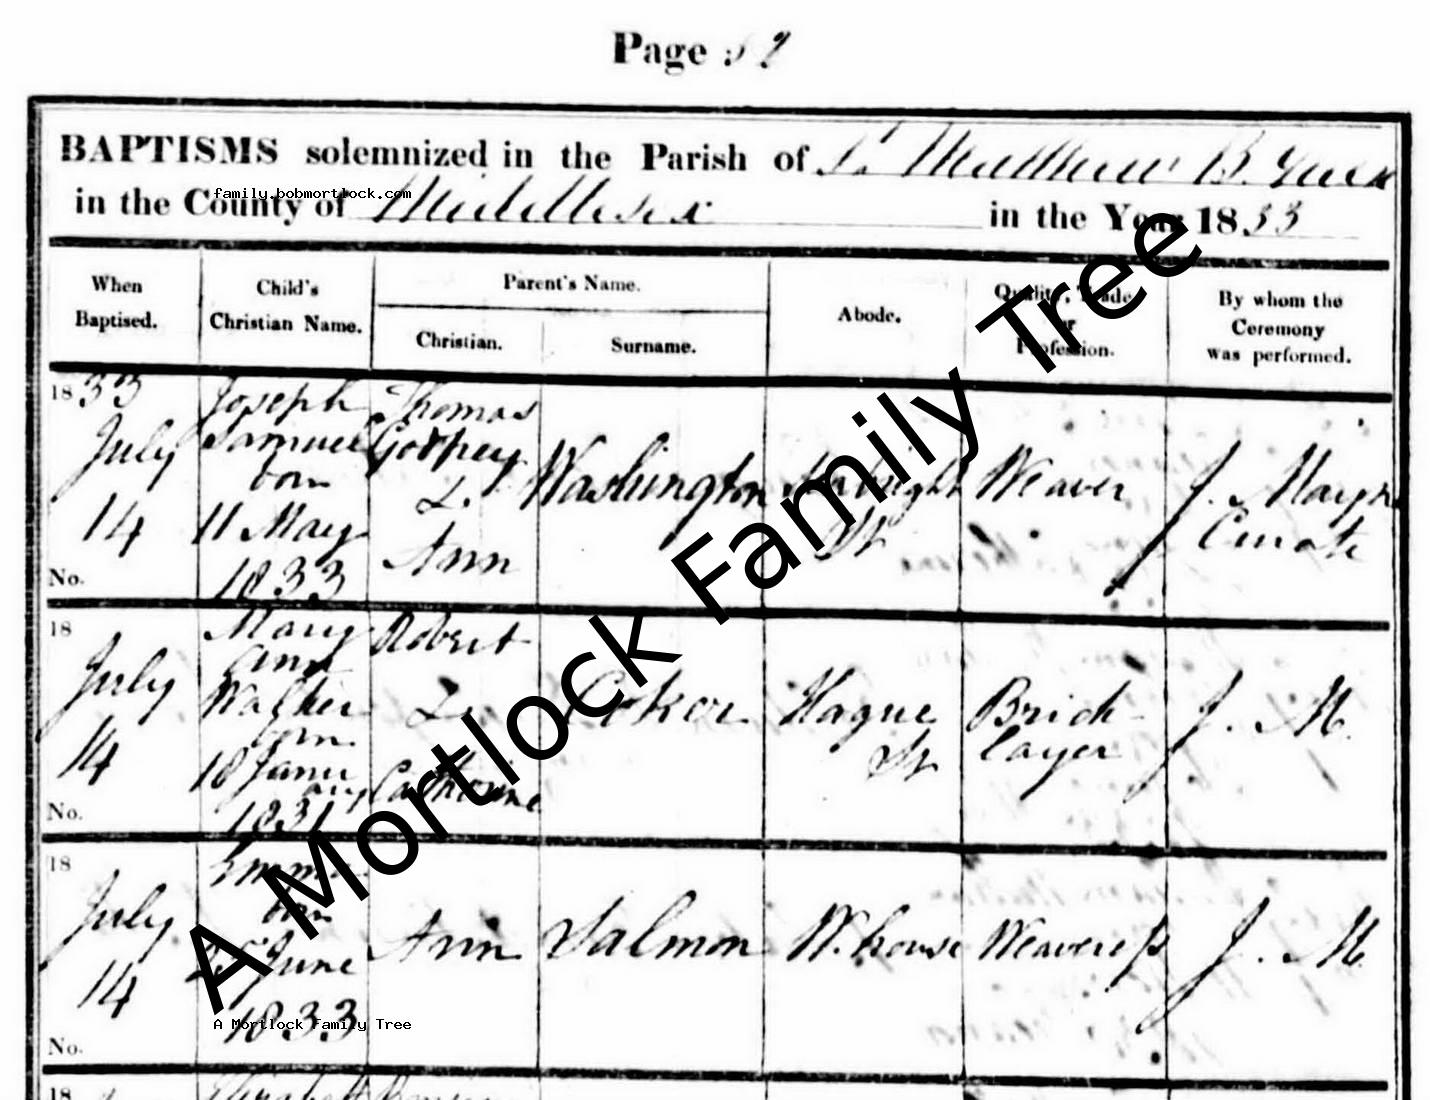 Page 52
BAPTISMS solemnized in the Parish of St Matthew B. Green
family.bobmortlock.com
in the County of Middlesex in the Year 1833
When Baptised.
Child's Christian Name.
Parent's Name.
Christian.
Surname.
Abode.
Quality, Trade or Profession.
By whom the Ceremony was performed.
1833
July
14
No.
Joseph
Samuel
born
11 May
1833
Thomas
Godfrey
&
Ann
Washington
St
Weaver
J.
Curate
18
July
14
No.
Mary
Ann
Walker
born
18 Janu
ary
1831
Robert
&
Catherine
Hague
St
Brick
layer
J. M.
18
July
14
No.
Emma
born
June
1833
Ann
Salmon
W. house
J. M.
18
Elizabeth
A Mortlock Family Tree
A Mortlock Family Tree